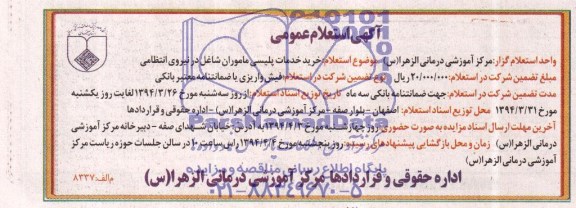 آگهی استعلام عمومی
واحد استعلام گزار: مرکز آموزشی درمانی الزهرا(س) موضوع استعلام: خرید خدمات پلیسی ماموران شاغل در نیروی انتظامی
مبلغ تضمین شرکت در استعلام: ۲۰/۰۰۰/۰۰۰ ریال نوع تضمین شرکت در استعلام: فیش واریزی یا ضمانتنامه معتبر بانکی
مدت تضمین شرکت در استعلام: جهت ضمانتنامه بانکی سه ماه تاریخ توزیع اسناد استعلام: از روز سه شنبه مورخ ۱۳۹۴/۳/۲۶ لغایت روز یکشنبه
مورخ ۱۳۹۴/۳/۳۱ محل توزیع اسناد استعلام: اصفهان - بلوار صفه - مرکز آموزشی درمانی الزهرا(س) - اداره حقوقی و قراردادها
آخرین مهلت ارسال اسناد مزایده به صورت حضوری: روز چهارشنبه مورخ به آدرس: خیابان شهدای صفه - دبیرخانه مرکز آموزشی
درمانی الزهرا(س) زمان و محل بازگشایی پیشنهادهای رسیده: روز پنجشنبه مورخ راس ساعت ۱۰ در سالن جلسات حوزه ریاست مرکز
آموزشی درمانی الزهرا(س)
اداره حقوقی و قراردادها مرکز آموزشی درمانی الزهرا(س)
م الف: ۸۳۳۷
ParsNamadData
پایگاه اطلاع رسانی مناقصه و مزایده
۰۲۱-۸۸۳۴۹۶۷۰-۵